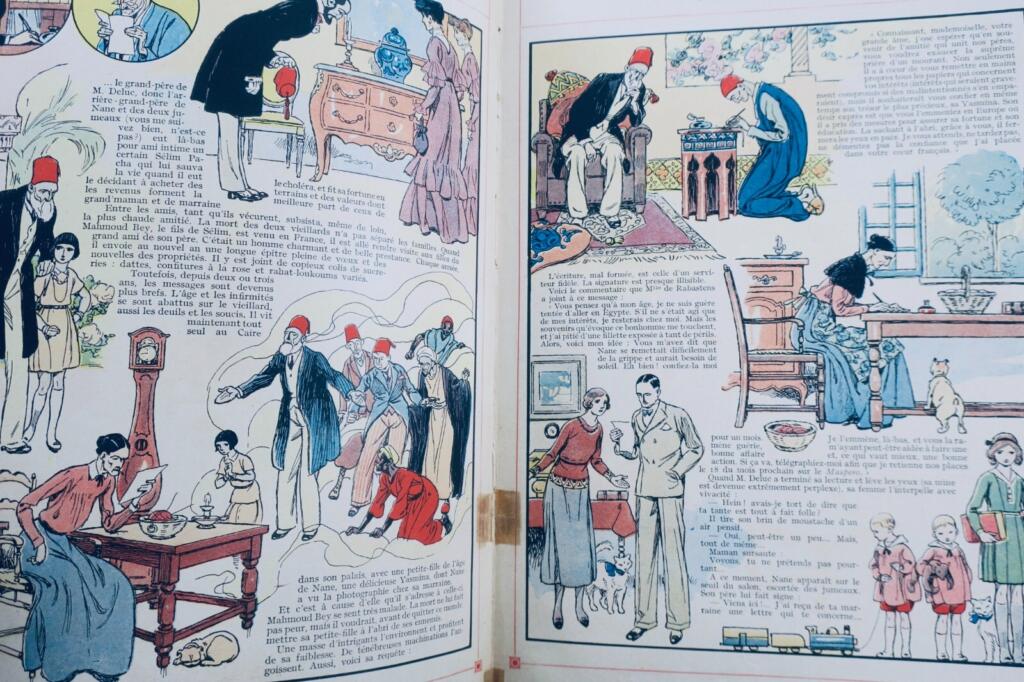 le grand-père de
M. Deluc, donc l'ar-
rière-grand-père de
Nane et des deux ju-
meaux (vous me sui-
vez bien, n'est-ce
pas ?) eut là-bas
pour ami intime un
certain Sélim Pa-
cha qui lui sauva
la vie quand il eut
le choléra, et fit sa fortune en
le décidant à acheter des
terrains et des valeurs dont
les revenus forment la
meilleure part de ceux de
grand'maman et de marraine
Entre les amis, tant qu'ils vécurent, subsista, même de loin,
la plus chaude amitié. La mort des deux vieillards n'a pas séparé les familles. Quand
Mahmoud Bey, le fils de Sélim, est venu en France, il est allé rendre visite aux filles du
grand ami de son père. C'était un homme charmant et de belle prestance. Chaque année,
il envoie au nouvel an une longue épître pleine de vœux et des
nouvelles des propriétés. Il y est joint de copieux colis de sucre-
ries : dattes, confitures à la rose et rahat-loukoums variés.
Toutefois, depuis deux ou trois
ans, les messages sont devenus
plus brefs. L'âge et les infirmités
se sont abattus sur le vieillard,
aussi les deuils et les soucis. Il vit
maintenant tout
seul au Caire
dans son palais, avec une petite-fille de l'âge
de Nane, une délicieuse Yasmina, dont Nane
a vu la photographie chez sa marraine.
Et c'est à cause d'elle qu'il s'adresse à celle-ci.
Mahmoud Bey se sent très malade. La mort ne lui fait
pas peur, mais il voudrait, avant de quitter ce monde
mettre sa petite-fille à l'abri de ses ennemis.
Une masse d'intrigants l'environnent et profitent
de sa faiblesse. De ténébreuses machinations l'an-
goissent. Aussi, voici sa requête :
« Connaissant, mademoiselle, votre
grande âme, j'ose espérer qu'en sou-
venir de l'amitié qui unit nos pères,
vous voudrez exaucer la suprême
prière d'un mourant. Non seulement
il a à cœur de vous remettre en mains
propres tous les papiers qui concernent
vos intérêts (intérêts qui seraient grave-
ment compromis si des malintentionnés s'en empa-
raient), mais il souhaiterait vous confier en même
temps son trésor le plus précieux, sa Yasmina. Son
désir exprès est que vous l'emmeniez en Europe où
j'ai pris des mesures pour assurer sa fortune et son
éducation. La sachant à l'abri, grâce à vous, je
mourrai en paix. Je vous attends, ne tardez pas,
ne démentez pas la confiance que j'ai placée
dans votre cœur français. »
L'écriture, mal formée, est celle d'un servi-
teur fidèle. La signature est presque illisible.
Voici le commentaire que Mme de Rabastens
a joint à ce message :
« Vous pensez qu'à mon âge, je ne suis guère
tentée d'aller en Egypte. S'il ne s'était agi que
de mes intérêts, je resterais chez moi. Mais les
souvenirs qu'évoque ce bonhomme me touchent,
et j'ai pitié d'une fillette exposée à tant de périls.
Alors, voici mon idée : Vous m'avez dit que
Nane se remettait difficilement
de la grippe et aurait besoin de
soleil. Eh bien ! confiez-la moi
pour un mois.
Je l'emmène, là-bas, et vous la ra-
mène guérie,
m'ayant peut-être aidée à faire une
bonne affaire
et, ce qui vaut mieux, une bonne
action. Si ça va, télégraphiez-moi afin que je retienne nos places
le 18 du mois prochain sur le
Quand M. Deluc a terminé sa lecture et lève les yeux (sa mine
est devenue extrêmement perplexe), sa femme l'interpelle avec
vivacité :
— Hein ! avais-je tort de dire que
ta tante est tout à fait folle?
Il tire son brin de moustache d'un
air pensif.
— Oui, peut-être un peu... Mais,
tout de même...
Maman sursaute :
— Voyons, tu ne prétends pas pour-
tant...
A ce moment, Nane apparaît sur le
seuil du salon, escortée des jumeaux.
Son père lui fait signe :
— Viens ici !... J'ai reçu de ta mar-
raine une lettre qui te concerne...